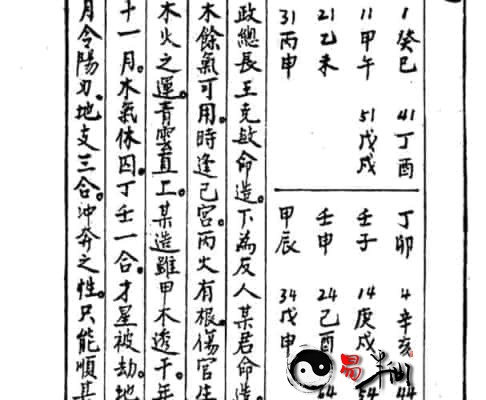 1癸巳 41丁酉
11甲午 51戊戌
21乙未
31丙申
丁卯 4辛亥 44
壬子 14庚戌 54
壬申 24己酉 64
甲辰 34戊申
政總長王克敏命造。下為反人某君命造。
木餘氣可用。時逢巳宮。丙火有根。傷官生
木火之運。青雲直上。某造雖甲木透干。年
十一月。木氣休囚。丁壬一合。才星被劫。地
月令陽刃。地支三合。冲奔之性。只能順其
易